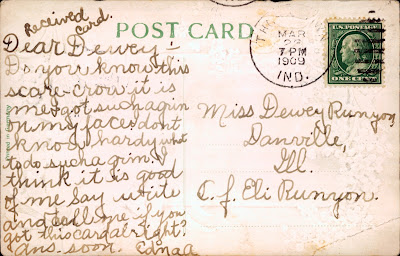 Received
card.
POST CARD
Dear Dewey:-
Do you know this
scare-crow, it is
me got such a gin
on my face, dont
know hardy what
to do such a gin. I
think it is good
of me Say write
and tell me if you
got this card al right?
Ans. soon. Edna A
MAR
7 PM
1909
IND.
U.S. POSTAGE
ONE CENT
Miss Dewey Runyon,
Danville,
Ill.
C.f. Eli Runyon.